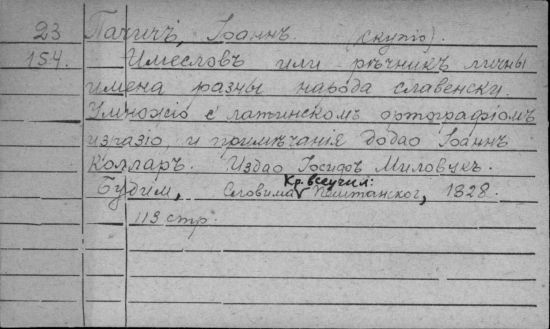 23 Пачичъ, Іоаннъ. (скупіо).
154. Имесловъ или рѣчникъ личны
имена разны народа славенски.
Умножіо с латинскомъ ортографіомъ
изъазіо, и примѣчанія додао Іоаннъ
Колларъ. Издао Іосифъ Миловукъ.
Кр. всеучил:
Будим, Словима Пештанског, 1828.
113 стр.